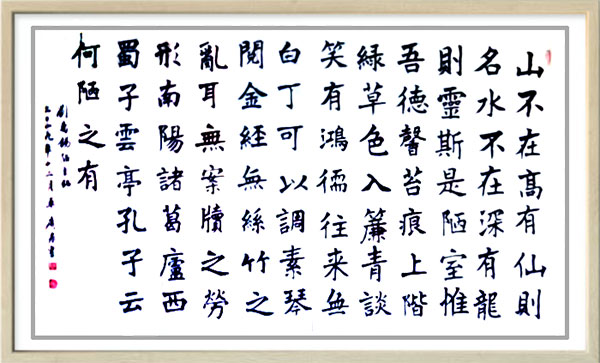 山不在高有仙則
名水不在深有龍
則靈斯是陋室惟
吾德馨苔痕上階
綠草色入簾青談
笑有鴻儒往來無
白丁可以調素琴
閱金經無絲竹之
亂耳無案牘之勞
形南陽諸葛廬西
蜀子雲亭孔子云
何陋之有
劉禹錫陋室銘
二〇一九年十二月